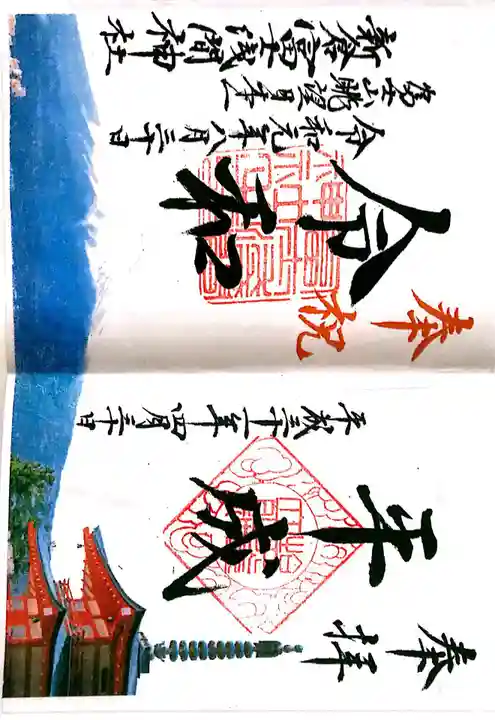 奉拝
平成
平成三十一年四月三十日
奉祝
令和
令和元年八月三十日
富士山眺望日本一
新倉富士浅間神社